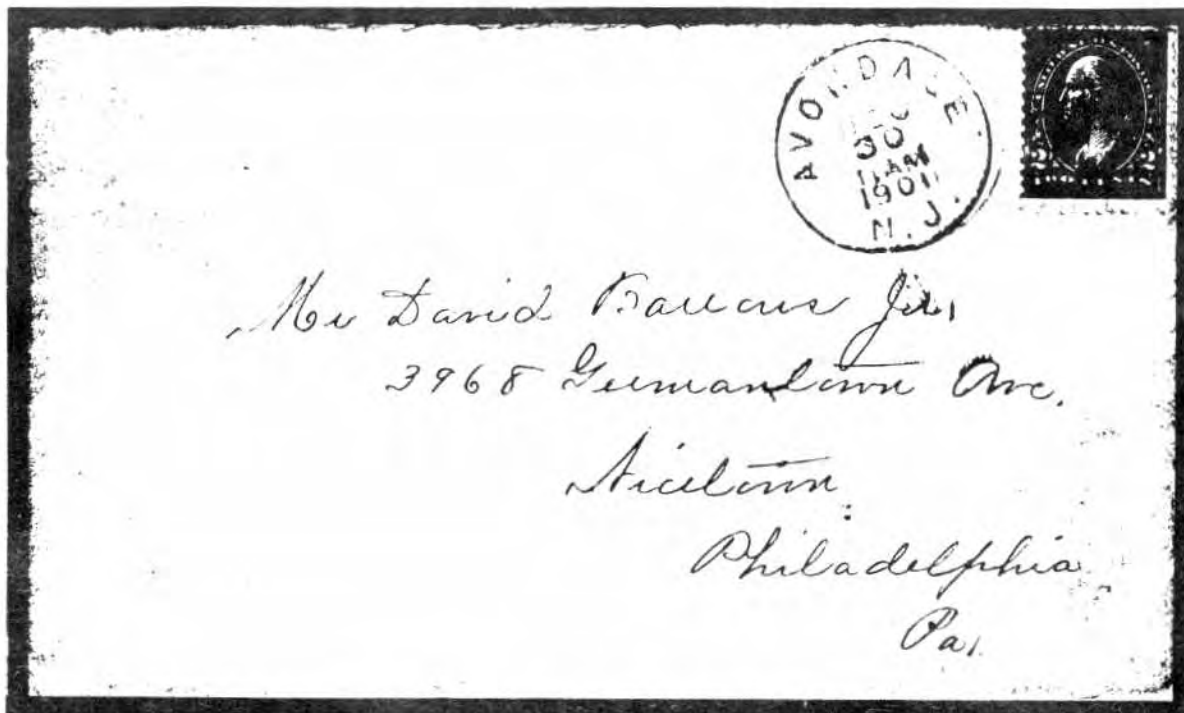 AVONDALE.
30
11 AM
1901
N.J.
2 2
Mr David Barrows Jr.
3968 Germantown Ave.
Nicetown
Philadelphia
Pa.